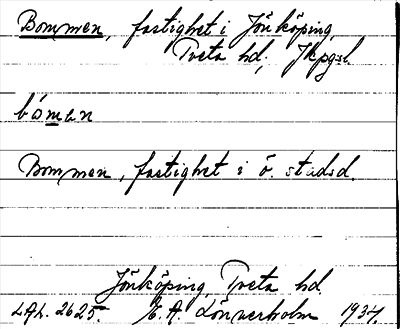 Bommen, fastighet i Jönköping,
Tveta hd, Jkpgsl
bómen
Bommen, fastighet i ö. stadsd.
Jönköping, Tveta hd
LAL. 2625. E.A. Lönnerholm 1934.